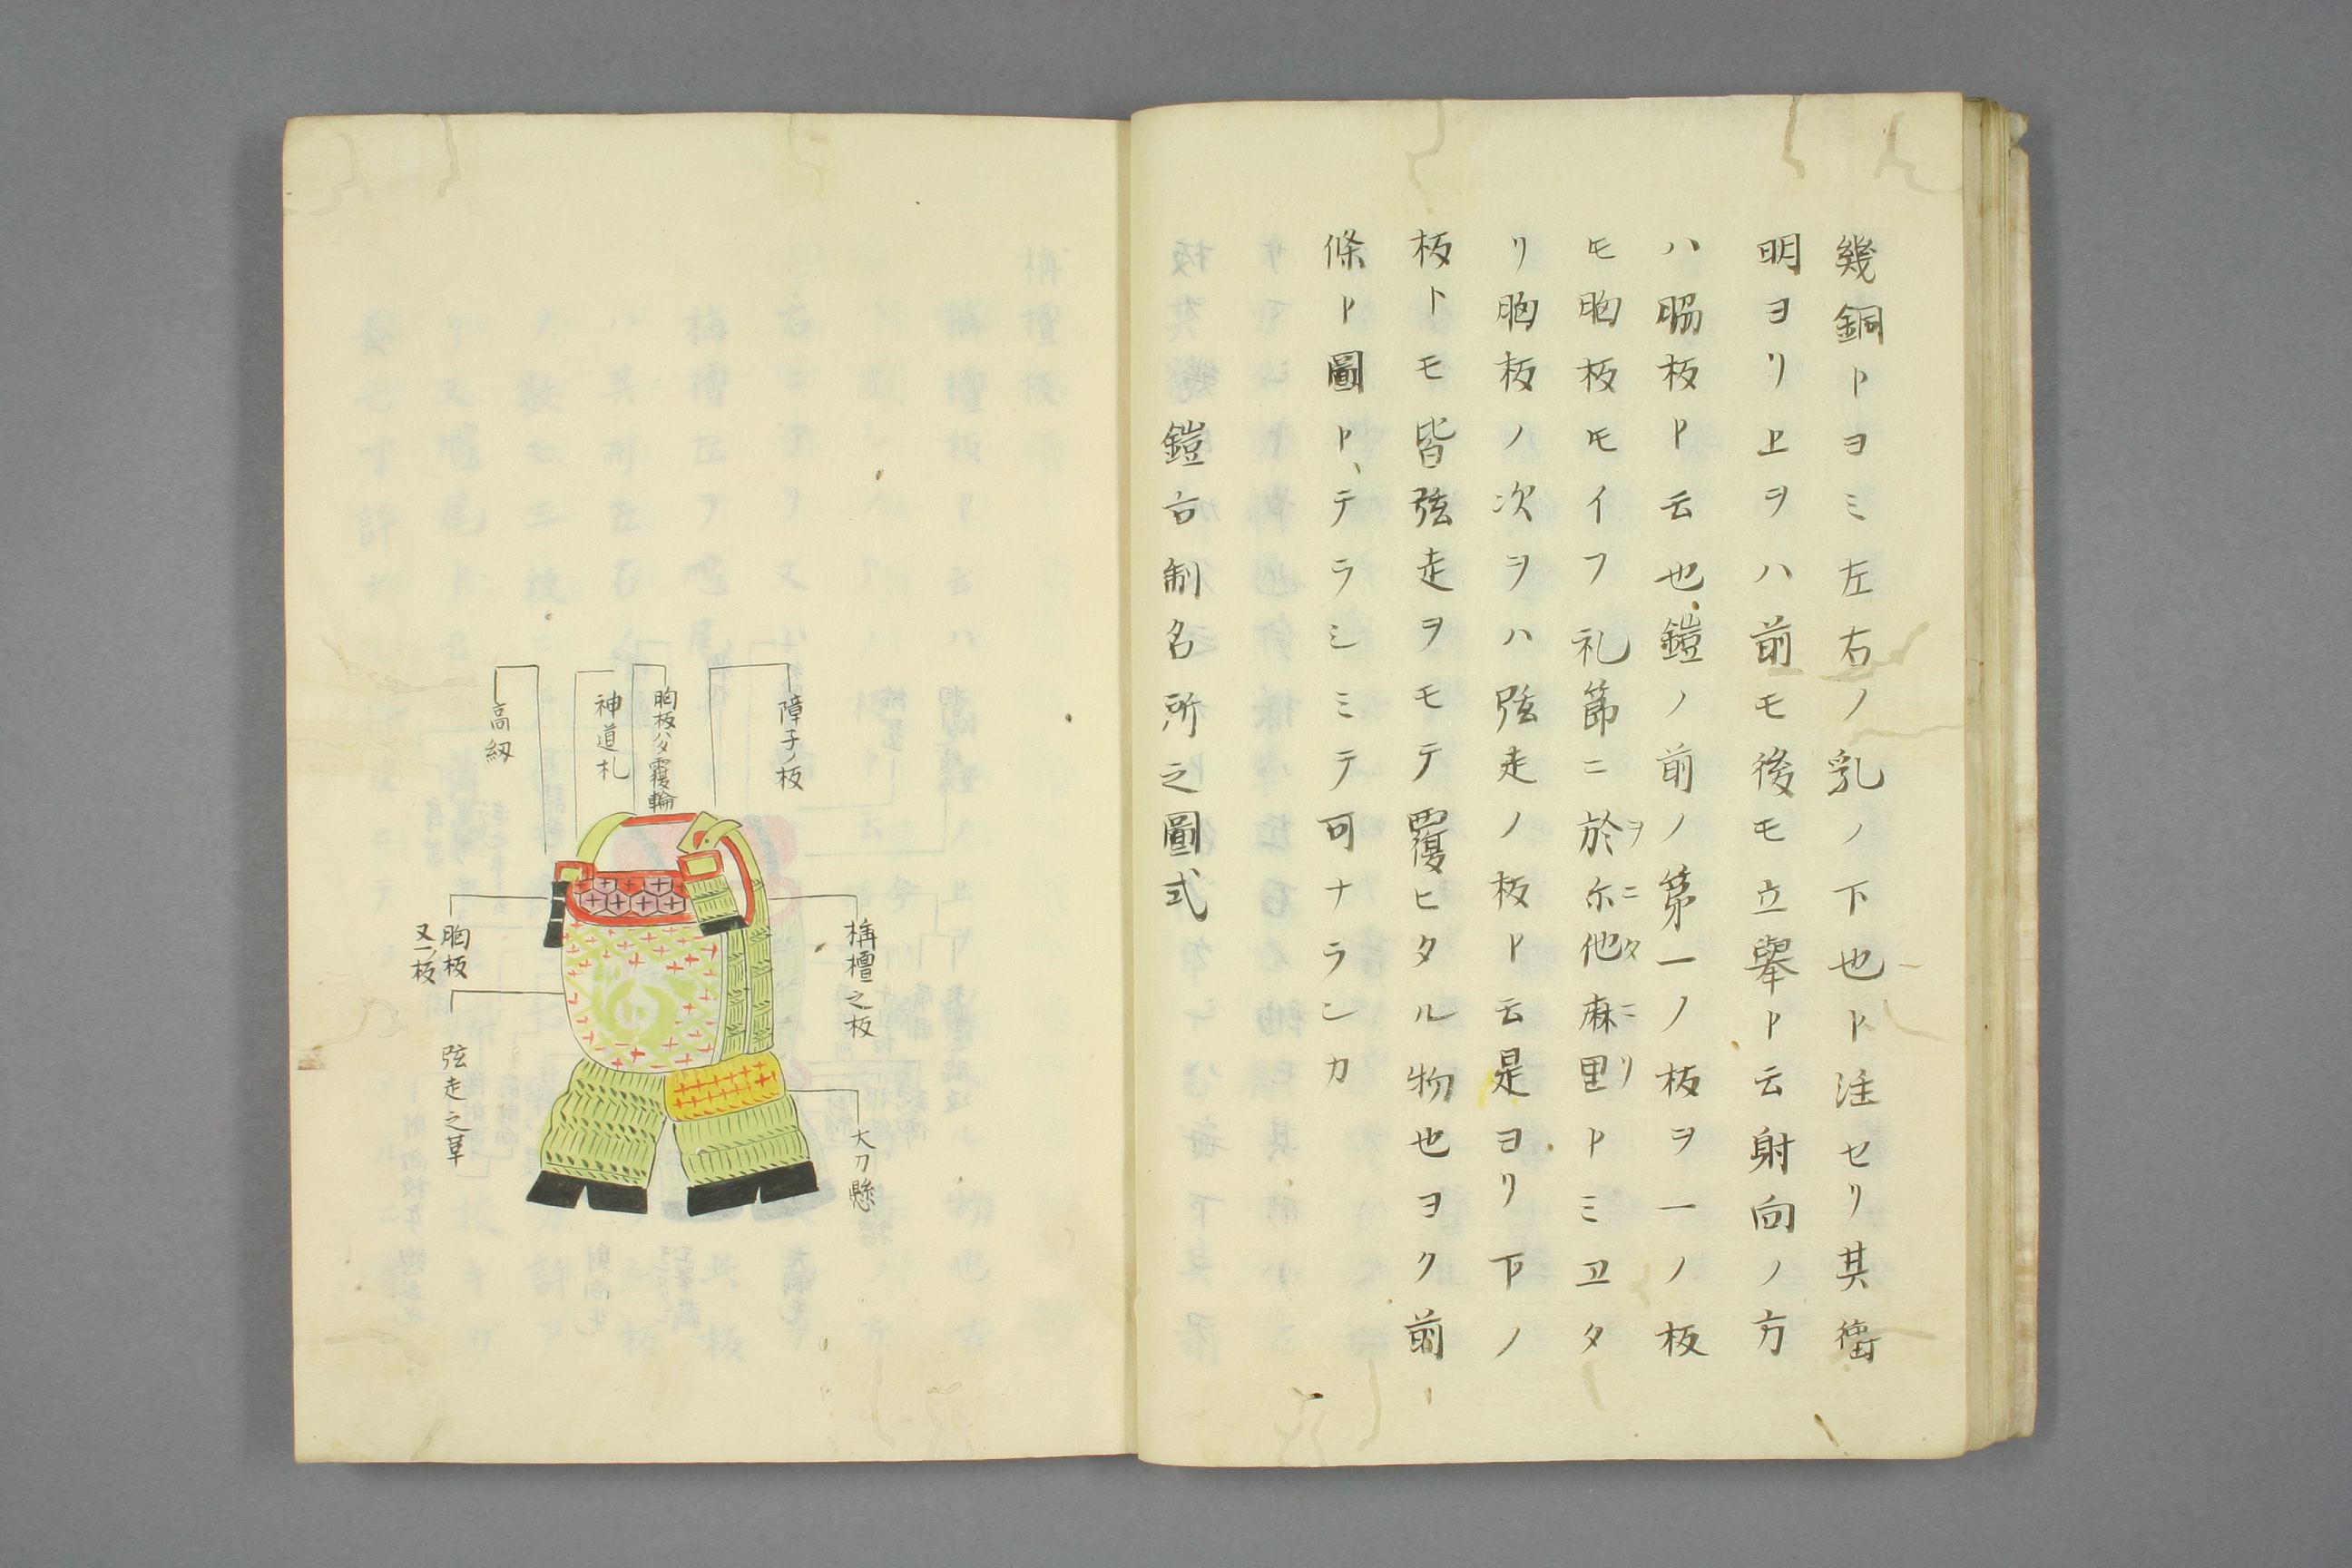 幾銅トヨミ左右ノ乳ノ下也ト注セリ其衞
明ヨリ上ヲハ前モ後モ立擧ト云射向ノ方
ハ脇板ト云也鎧ノ前ノ第一ノ板ヲ一ノ板
モ胸板モイフ礼節ニ於尓他麻里トミヱタ
ヲニタニリ
リ胸板ノ次ヲハ弦走ノ板ト云是ヨリ下ノ
板トモ皆弦走ヲモテ覆ヒタル物也ヨク前
條ト圖トヽテラシミテ可ナランカ
鎧古制名所之圖式
障子ノ板
胸板ハタ覆輪
神道札
高紐
栴檀之板
大刀懸
胸板
又一ノ板
弦走之革